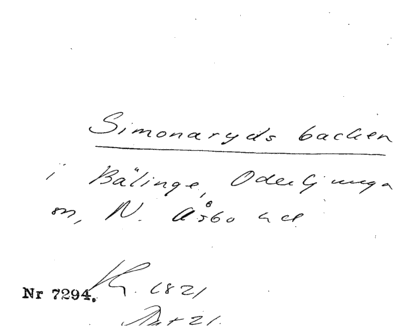 Simonaryds backen
i Bälinge, Oderljunga
sn, N. Åsbo hd.
Nr 7294. 1821